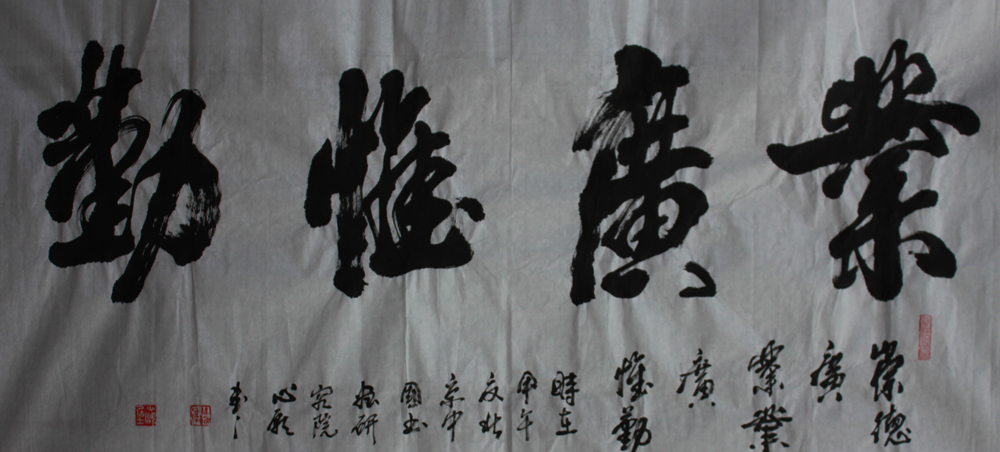 業廣惟勤
崇德
廣
業業
廣
惟勤
時在
甲午
夏北
京中
國书
畫研
究院
心
書